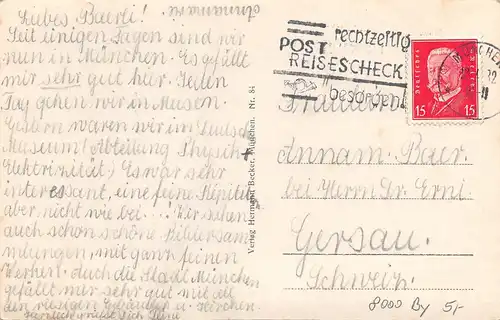 Liebes Baerli!
Seit einigen Tagen sind wir
nun in München. Es gefällt
mir sehr gut hier. Jeden
Tag gehen wir in Museen.
Gestern waren wir im Deutschen
Museum! (Abteilung Physik +
Elektrizität) Es war sehr
interessant, eine feine
aber nicht wie bei... Wir sehen
auch schon schöne Bildersam
mlungen, mit ganz feinen
Werken. durch die Stadt München
gefällt mir sehr gut mit all
den riesigen Gebäuden u. Kirchen.
Verlag Hermann Becker, München. Nr. 84
rechtzeitig
POST
REISESCHECK
besorgen
DEUTSCHES REICH
15 15
Annam. Baer.
bei Herrn Dr. Erni
Gersau.
Schweiz.
8000 By 5,-